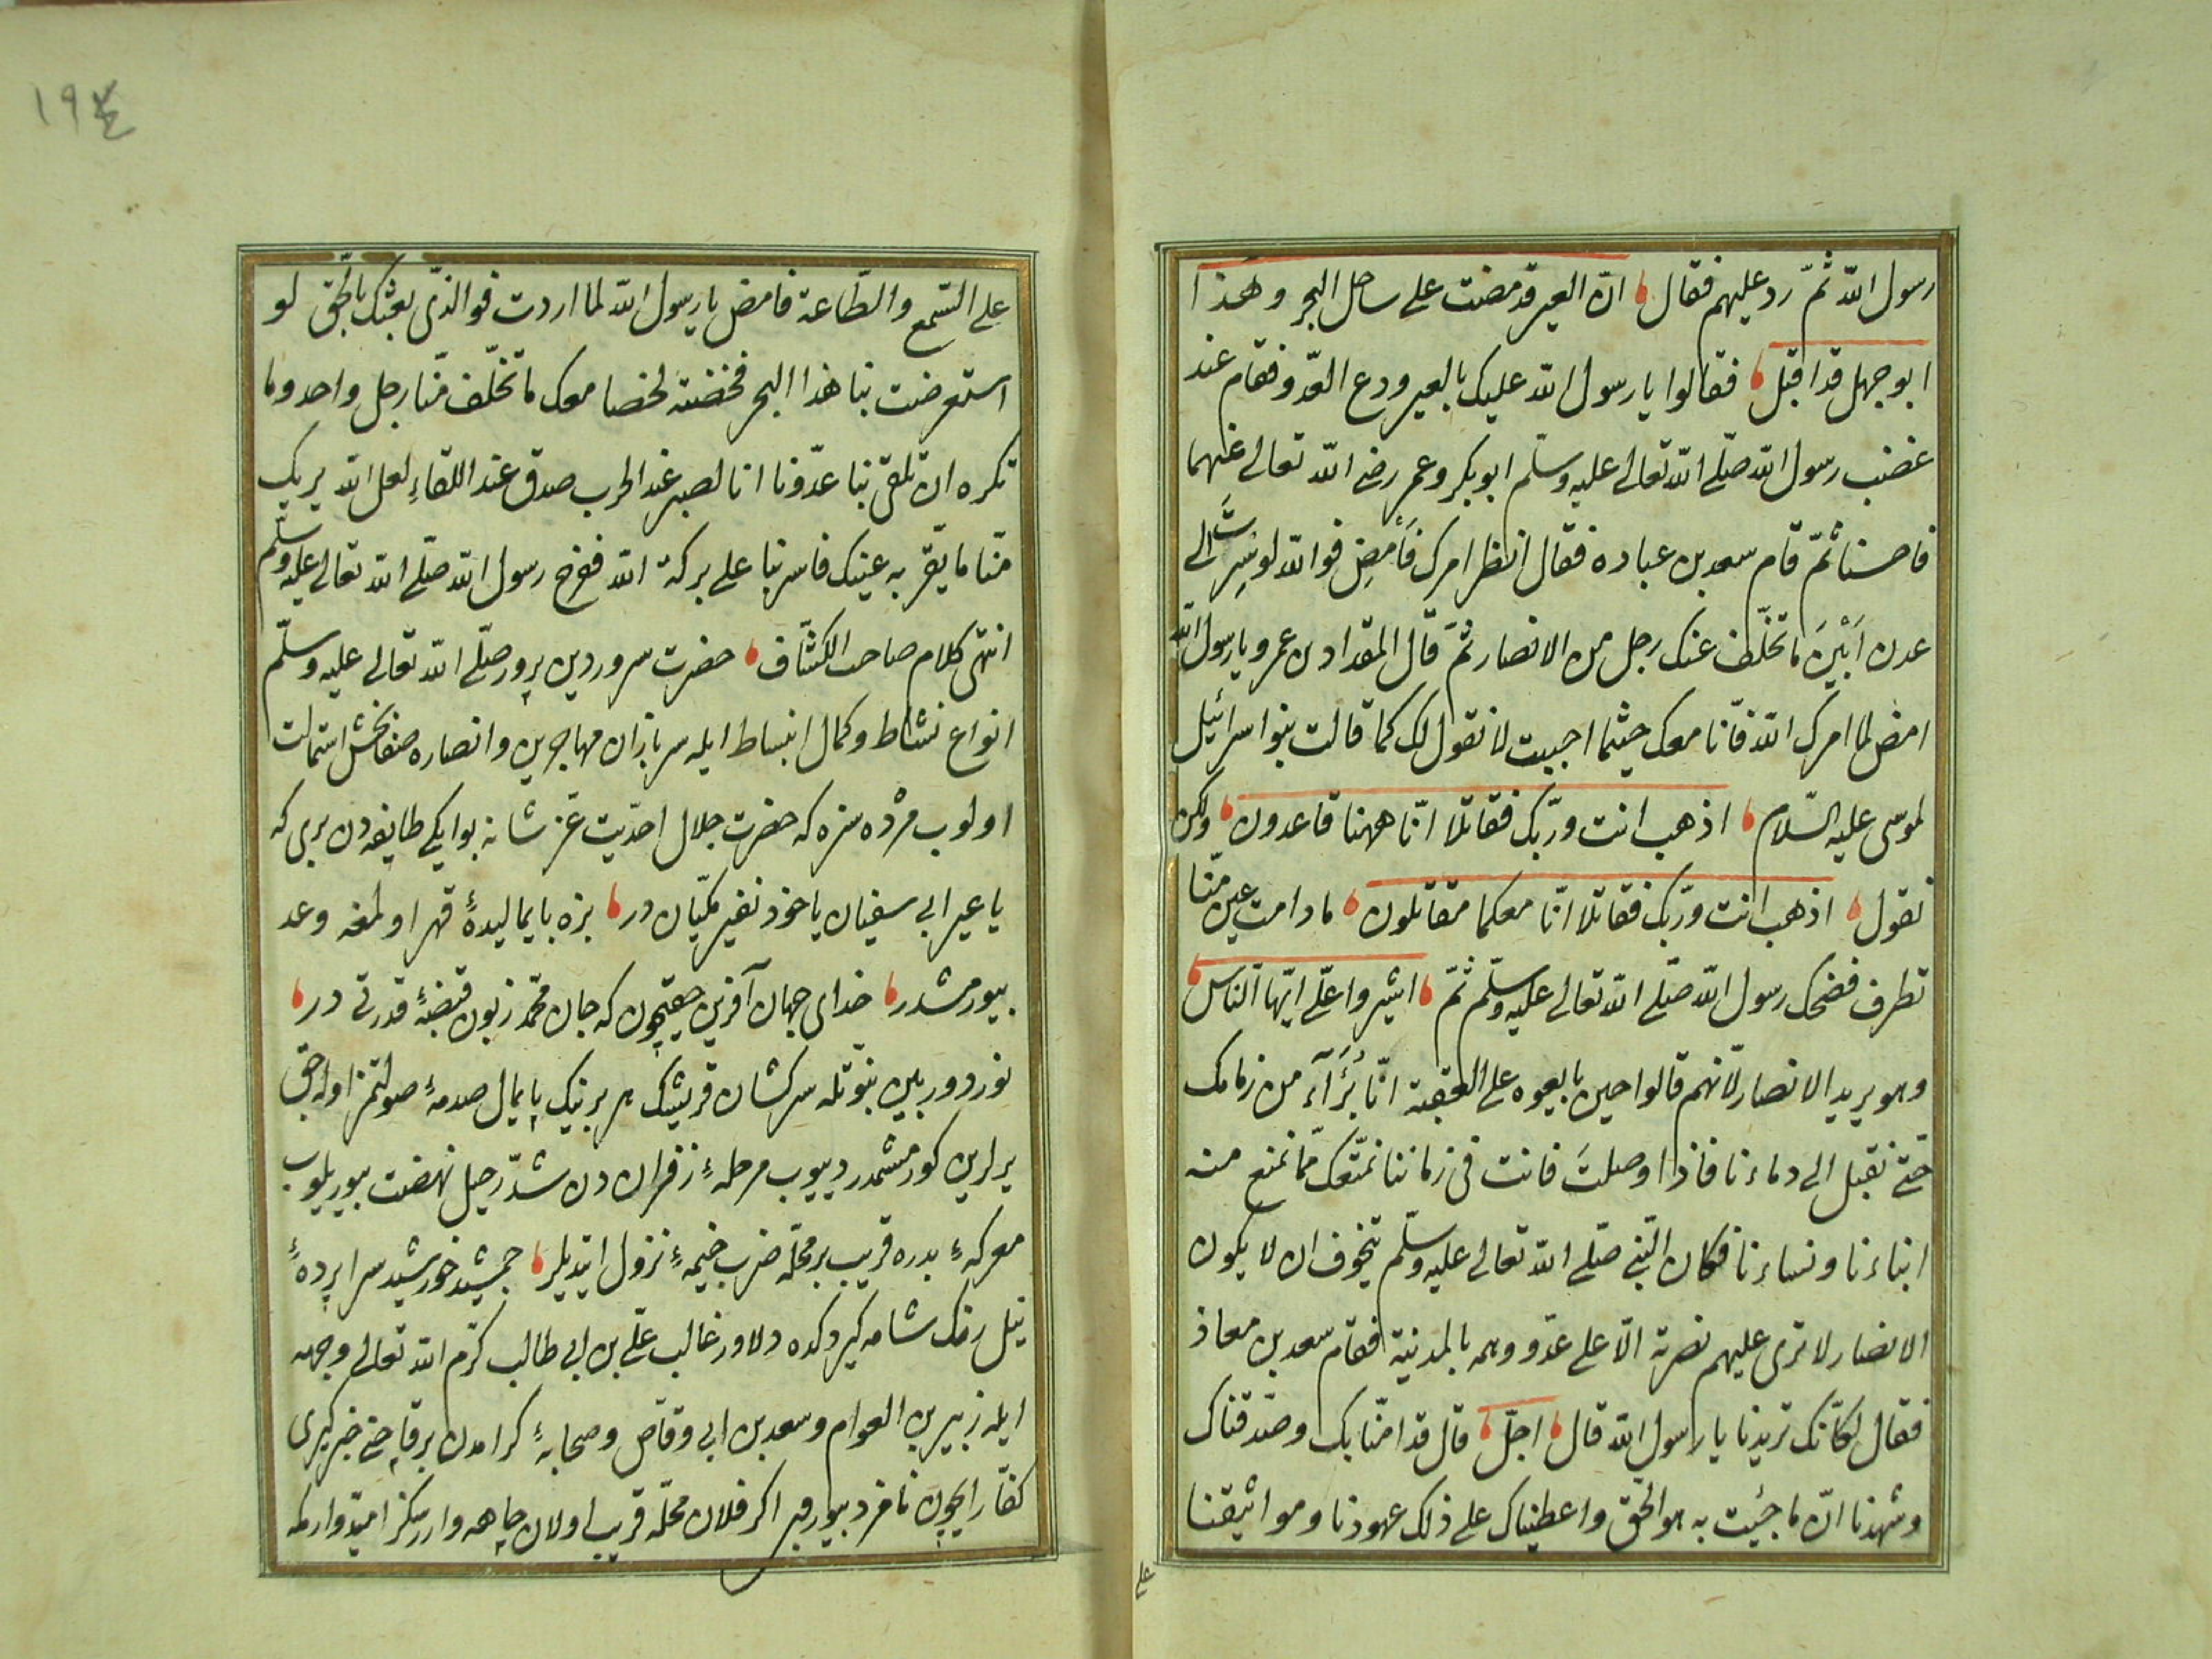 رسول الله ثمّ ردّ عليهم فقال ان العير قد مضت على ساحل البحر وهذا
ابو جهل قد اقبل فقالوا يا رسول الله عليك بالعير ودع العدّو فقام عند
غضب رسول الله صلّى الله تعالى عليه وسلّم ابو بكر وعمر رضى الله تعالى عنهما
فاحسنا ثمّ قام سعد بن عباده فقال انظر امرك فَأمضِ فوالله لو سِرتَ الى
عدن اَبْيَنَ ما تخلّف عنك رجل من الانصار ثمّ قال المقداد بن عمرو يا رسول الله
امض لما امرك الله فانّا معك حيثما احببت لا نقول لك كما قالت بنوا سرائيل
لموسى عليه السّلام اذهب انت وربّك فقاتلا انّا ههنا قاعدون ولكن
نقول اذهب انت وربّك فقاتلا انّا معكما مقاتلون ما دامت عين منّا
تطرف فضحك رسول الله صلّى الله تعالى عليه وسلّم ثمّ اشيروا علّى ايّها النّاس
وهو يريد الانصار لانّهم قالوا حين بايعوه على العقبة انّا بُرَآء من زمامك
حتّى نقبل الى دماءنا فاذا وصلتَ فانت فى زماننا نمنعك ممّا نمنع منه
ابناءنا ونساءنا فكان النّبى صلّى الله تعالى عليه وسلّم يتخوف ان لا يكون
الانصار لا ترى عليهم نصرته الّا على عدّو وهمه بالمدينة فقام سعد بن معاذ
فقال لكانّك تريدنا يا رسول الله قال اجلّ قال قد امنّا بك وصدّقناك
وشهدنا انّ ما جئت به هو الحّق واعطيناك على ذلك عهودنا ومواثيقنا
على
١٩٤
على السّمع والطّاعة فامض يا رسول الله لما اردت فوالذّى بعثك بالحّق لو
استعرضت بنا هذا البحر فخضتَه لخضنا معك ما تخلّف منّا رجل واحد وما
نكره ان تلقى بنا عدّونا انا لصبر عند الحرب صدق عند اللقاءِ لعل الله يريك
منّا ما يقّر به عينك فاسر بنا على بركة الله ففرح رسول الله صلّى الله تعالى عليه وسلّم
انتهى كلام صاحب الكشّاف حضرت سرور دين پرور صلّى الله تعالى عليه وسلّم
انواع نشاط وكمال انبساط ايله سربازان مهاجرين وانصاره صفابخش استمالت
اولوب مژده سزه كه حضرت جلال احدّيت عّز شانه بو ايكى طايفه دن برى كه
يا عير ابى سفيان ياخود نفير مكّيان در بزه پايماليدهٔ قهر اولمغه وعد
بيورمشدر خداى جهان آفرين حقيچون كه جان محمّد زبون قبضهٔ قدرتى در
نور دوربين نبّوتله سركشان قريشك هر برينك پايمال صدمهٔ صولتمز اوله جق
يرلرين كورمشمدر ديیوب مرحلهٔ زفران دن شدّ رحيل نهضت بيوريلوب
معركهٔ بدره قريب بر محلّه ضرب خيمهٔ نزول ايتديلر جمشيد خورشيد سراپردهٔ
نيل رنك شامه كيردكده دلاور غالب علّى بن ابى طالب كرّم الله تعالى وجهه
ايله زبير بن العوام وسعد بن ابى وقاّص وصحابهٔ كرامدن برقاچنى خبر كيرى
كفّار ايچون نامزد بيوررلر اكر فلان محلّه قريب اولان چاهه وارسكز اميّدوارمكه